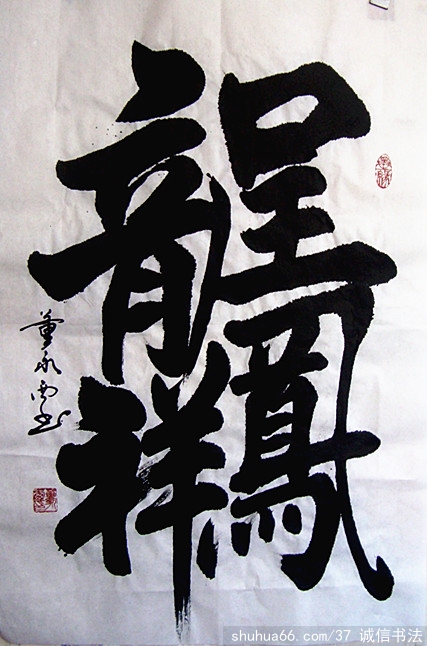 龍鳳呈祥
董永
书
shuhua66.com/37 诚信书法